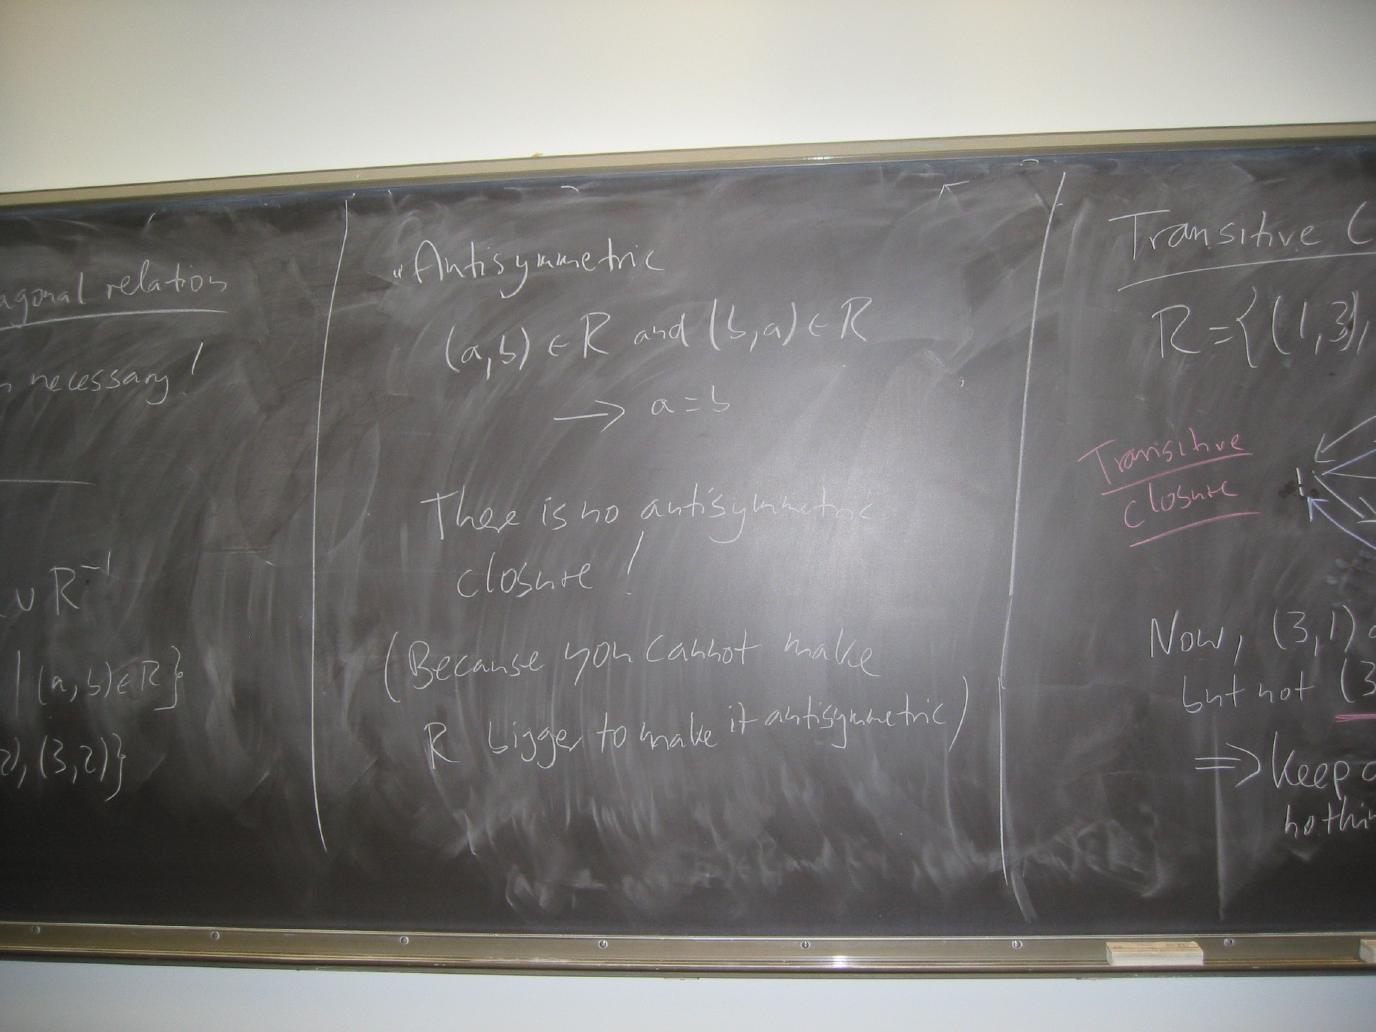 agonal relation
n necessary!
∪ R⁻¹
| (a,b) ∈ R}
2), (3,2)}
"Antisymmetric
(a,b) ∈ R and (b,a) ∈ R
→ a = b
There is no antisymmetric
closure!
(Because you cannot make
R bigger to make it antisymmetric)
Transitive C
R = {(1,3),
Transitive
closure
1
Now, (3,1)
but not (3
⇒ Keep
nothin